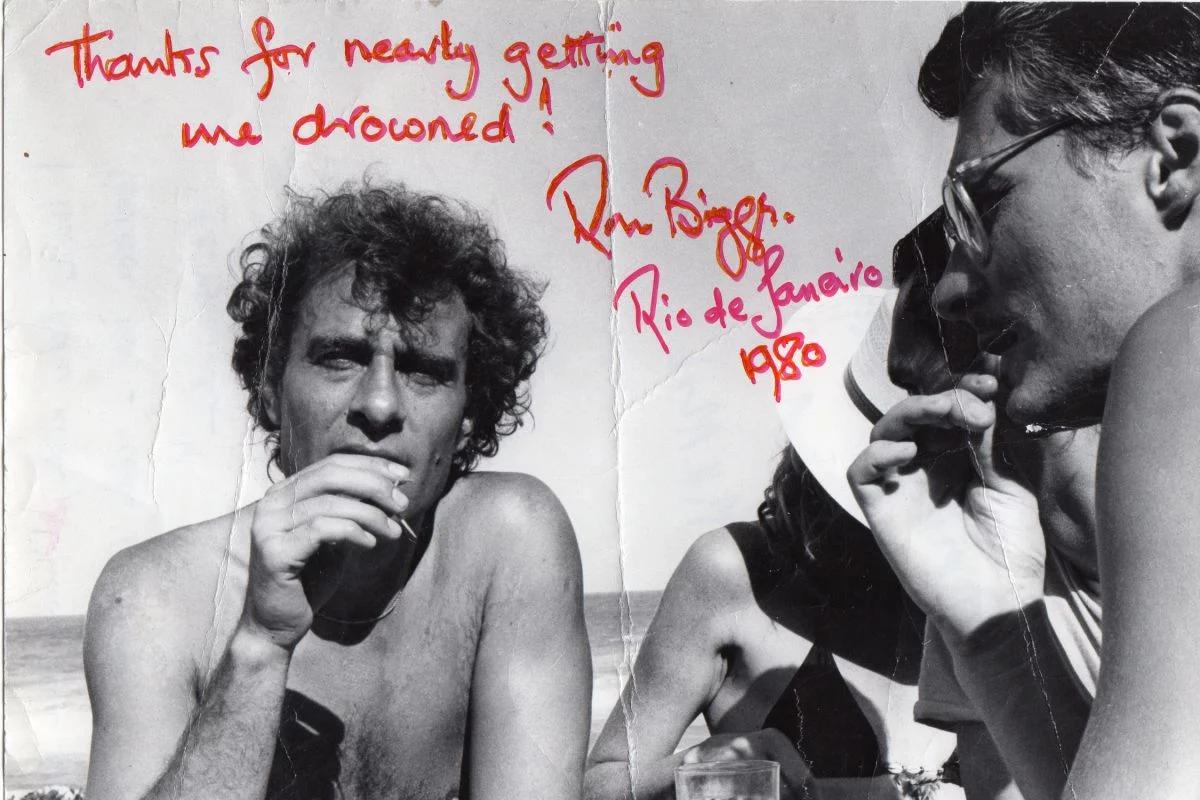 Thanks for nearly getting
me drowned!
Ron Biggs.
Rio de Janeiro
1980